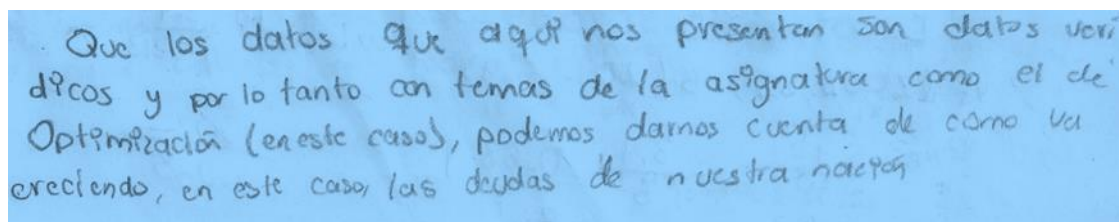 Que los datos que aquí nos presentan son datos veri
dicos y por lo tanto con temas de la asignatura como el de
Optimización (en este caso), podemos darnos cuenta de como va
creciendo, en este caso, las deudas de nuestra nación